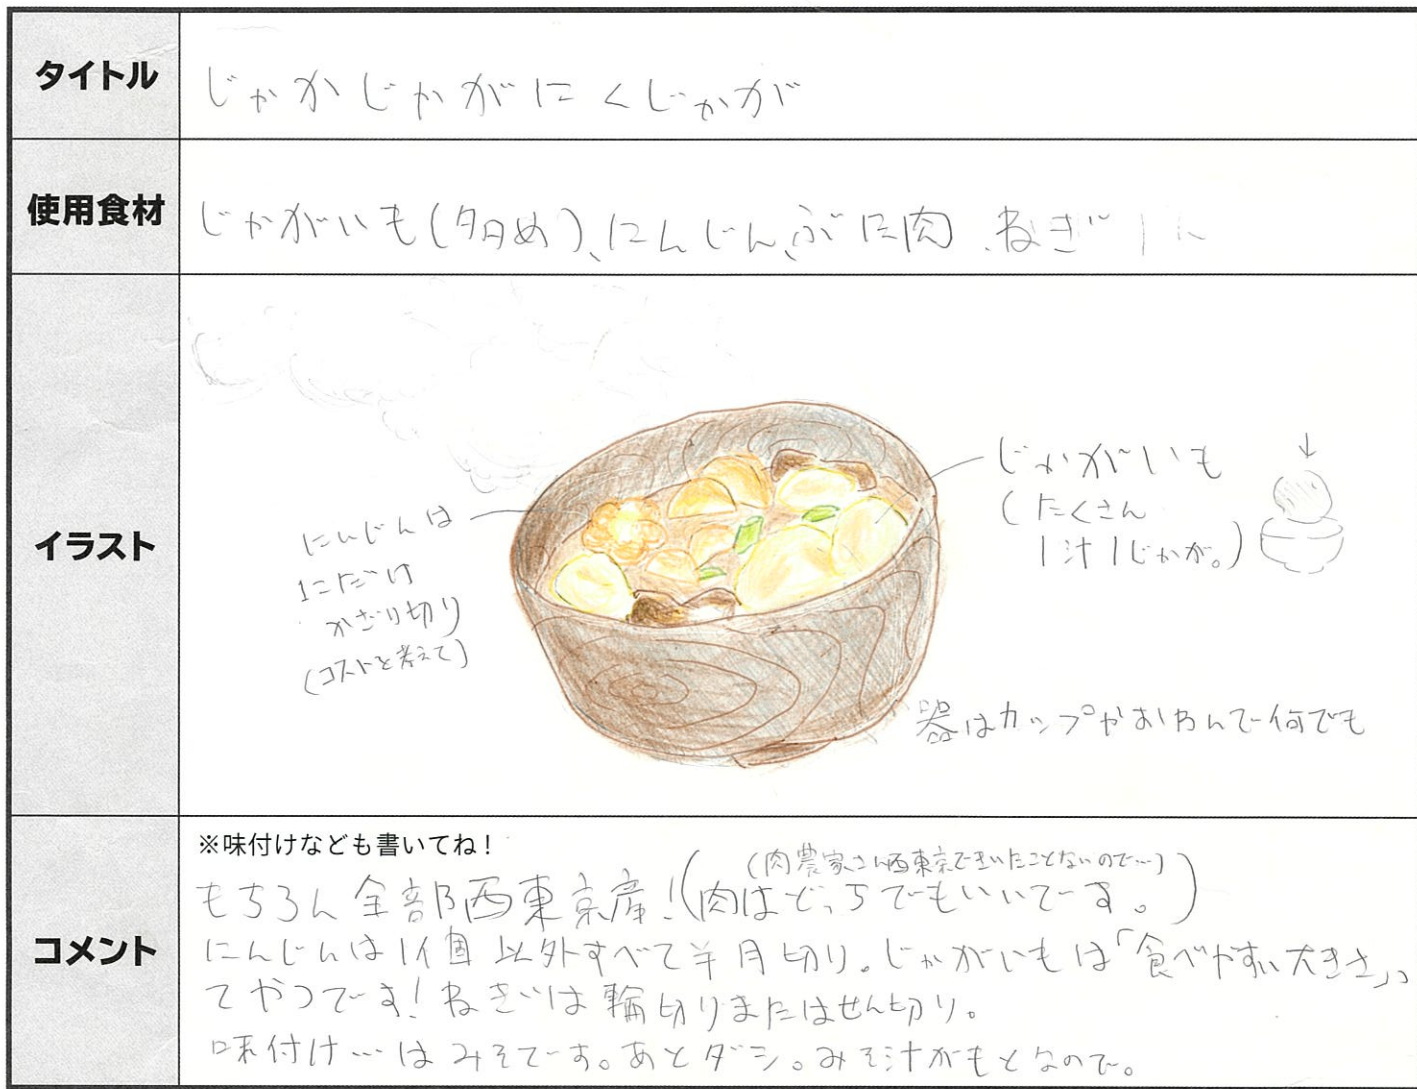 タイトル
じゃがじゃがにくじゃが
使用食材
じゃがいも(多め)、にんじん、ぶた肉、ねぎ
イラスト
にんじんは
1こだけ
かざり切り
(コストを考えて)
じゃがいも
(たくさん
1汁1じゃが。)
器はカップやおわんで何でも
コメント
※味付けなども書いてね!
(肉農家さん西東京できいたことないので…)
もちろん全部西東京産!(肉はどっちでもいいです。)
にんじんは1個以外すべて半月切り。じゃがいもは「食べやすい大きさ」っ
てやつです!ねぎは輪切りまたはせん切り。
味付け…はみそです。あとダシ。みそ汁がもとなので。